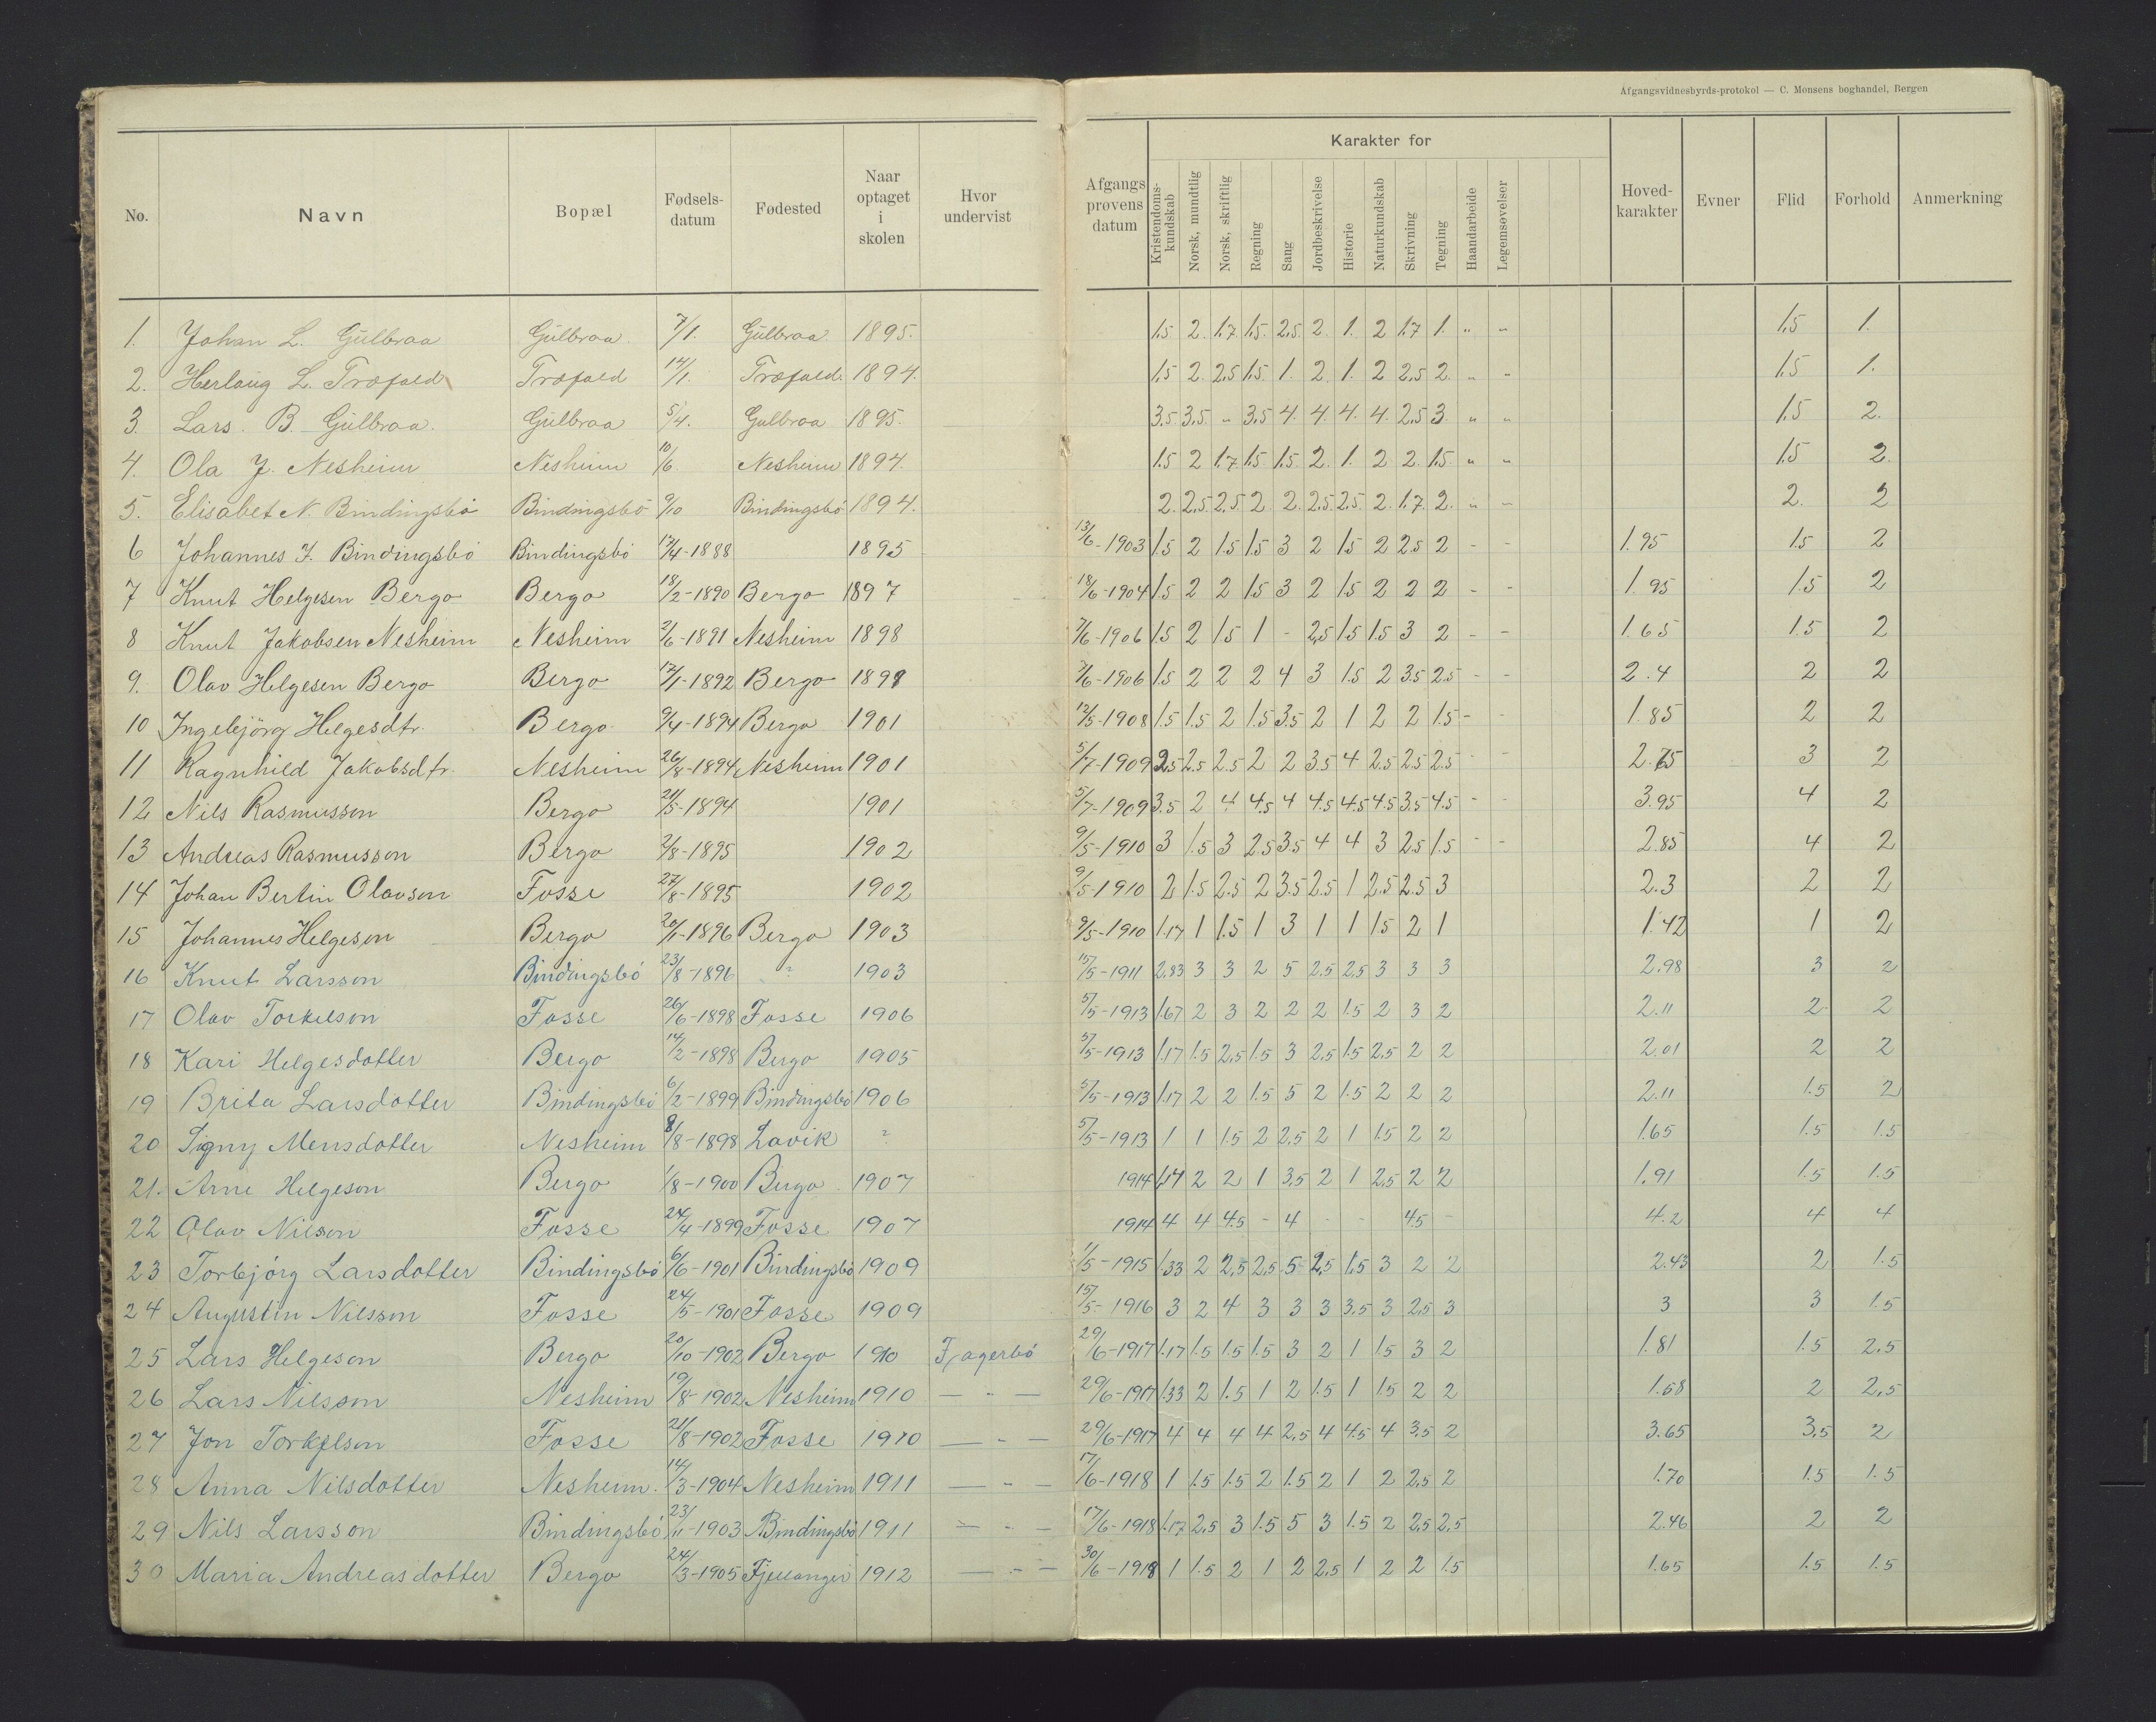 Afgangsvidnesbyrds-protokol — C. Monsens boghandel, Bergen
No. Navn Bopæl Fødsels-datum Fødested Naar optaget i skolen Hvor undervist Afgangsprøvens datum Karakter for Hoved-karakter Evner Flid Forhold Anmerkning
Kristendoms-kundskab Norsk, mundtlig Norsk, skriftlig Regning Sang Jordbeskrivelse Historie Naturkundskab Skrivning Tegning Haandarbeide Legemsøvelser
1. Johan L. Gülbraa Gülbraa 7/1. Gülbraa 1895. 1,5 2. 1,7 1,5. 2,5. 2. 1. 2 1,7 1. " " 1,5 1.
2. Herlaug L. Træfald Træfald 14/1. Træfald. 1894. 1,5 2. 2,5 1,5. 1. 2. 1. 2 2,5 2. " " 1,5 1.
3. Lars. B. Gülbraa. Gülbraa 5/4. Gulbraa 1895. 3,5. 3,5. " 3,5 4. 4. 4. 4. 2,5 3. " " 1,5 2.
4. Ola J. Nesheim Nesheim 10/6 Nesheim 1894. 1,5 2 1,7 1,5. 1,5. 2. 1. 2 2. 1,5. " " 1,5 2.
5. Elisabet N. Bindingsbö Bindingsbö 9/10 Bindingsbö 1894. 2. 2,5. 2,5 2. 2. 2,5. 2,5. 2. 1,7. 2. " " 2. 2
6 Johannes J. Bindingsbö Bindingsbö 12/4-1888 1895 13/6-1903 1.5 2 1.5 1.5 3 2 1.5 2 2.5 2 - - 1.95 1.5 2
7 Knut Helgesen Bergo Bergo 18/2-1890 Bergo 1897 18/6-1904 1.5 2 2 1.5 3 2 1.5 2 2 2 - - 1.95 1.5 2
8 Knut Jakobsen Nesheim Nesheim 2/6-1891 Nesheim 1898 7/6-1906 1.5 2 1.5 1 - 2,5 1.5 1.5 3 2 - - 1.65 1.5 2
9. Olav Helgesen Bergo Bergo 17/1-1892 Bergo 1898 7/6-1906 1.5 2 2 2 4 3 1.5 2 3.5 2.5 - - 2.4 2 2
10 Ingebjörg Helgesdtr. Bergo 9/4-1894 Bergo 1901 12/5-1908 1.5 1.5 2 1.5 3.5 2 1 2 2 1.5 - - 1.85 2 2
11 Ragnhild Jakobsdtr. Nesheim 26/8-1894 Nesheim 1901 5/7-1909 2.5 2.5 2.5 2 2 3.5 4 2.5 2.5 2.5 - - 2.65 3 2
12 Nils Rasmusson Bergo 21/5-1894 1901 5/7-1909 3.5 2 4 4.5 4 4.5 4.5 4.5 3.5 4.5 - - 3.95 4 2
13 Andreas Rasmusson Bergo 2/8-1895 1902 9/5-1910 3 1.5 3 2.5 3.5 4 4 3 2.5 1.5 - - 2.85 4 2
14 Johan Bertin Olavson Fosse 27/8-1895 1902 9/5-1910 2 1.5 2.5 2 3.5 2.5 1 2.5 2.5 3 2.3 2 2
15 Johannes Helgeson Bergo 20/1-1896 Bergo 1903 9/5-1910 1.17 1 1.5 1 3 1 1 1.5 2 1 1.42 1 2
16 Knut Larsson Bindingsbö 23/8-1896 ? 1903 15/5-1911 2.83 3 3 2 5 2.5 2.5 3 3 3 2.98 3 2
17 Olav Torkelson Fosse 26/6-1898 Fosse 1906 5/5-1913 1.67 2 3 2 2 2 1.5 2 3 2 2.11 2 2
18 Kari Helgesdotter Bergo 14/2-1898 Bergo 1905 5/5-1913 1.17 1.5 2.5 1.5 3 2,5 1.5 2,5 2 2 2.01 2 2
19 Brita Larsdotter Bindingsbö 6/2-1899 Bindingsbö 1906 5/5-1913 1.17 2 2 1.5 5 2 1.5 2 2 2 2.11 1.5 2
20 Signy Mensdotter Nesheim 8/8-1898 Lavik ? 5/5-1913 1 1 1.5 2 2,5 2 1 1.5 2 2 1.65 1.5 1.5
21. Arne Helgeson Bergo 1/8-1900 Bergo 1907 1914 1,17 2 2 1 3,5 2 1 2,5 2 2 1,91 1.5 1.5
22 Olav Nilson Fosse 24/4-1899 Fosse 1907 1914 4 4 4.5 - 4 - - 4.5 - 4.2 4 4
23 Torbjörg Larsdotter Bindingsbö 6/6-1901 Bindingsbö 1909 1/5-1915 1.33 2 2,5 2,5 5 2,5 1,5 3 2 2 2.43 2 1.5
24 Augustin Nilsson Fosse 24/5-1901 Fosse 1909 15/5-1916 3 2 4 3 3 3 3.5 3 2,5 3 3 3 1.5
25 Lars Helgeson Bergo 20/10-1902 Bergo 1910 Fagerbö 29/6-1917 1.17 1.5 1.5 1.5 3 2 1 1.5 3 2 1.81 1.5 2.5
26 Lars Nilsson Nesheim 19/8-1902 Nesheim 1910 — " — 29/6-1917 1.33 2 1.5 1 2 1.5 1 1.5 2 2 1.58 2 2,5
27 Jon Torkelson Fosse 21/8-1902 Fosse 1910 — " — 29/6-1917 4 4 4 4 2,5 4 4.5 4 3.5 2 3.65 3,5 2
28 Anna Nilsdotter Nesheim. 14/3-1904 Nesheim 1911 — " — 17/6-1918 1 1.5 1.5 2 1.5 2 1 2 2,5 2 1.70 1.5 1.5
29 Nils Larsson Bindingsbö 23/11-1903 Bindingsbö 1911 — " — 17/6-1918 1.17 2,5 3 1.5 5 3 1.5 2 2,5 2,5 2.46 2 2
30 Maria Andreasdotter Bergo 24/3-1905 Fjellanger 1912 — " — 30/6-1918 1 1.5 2 1 2 2,5 1 2 2 1.5 1.65 1.5 1.5